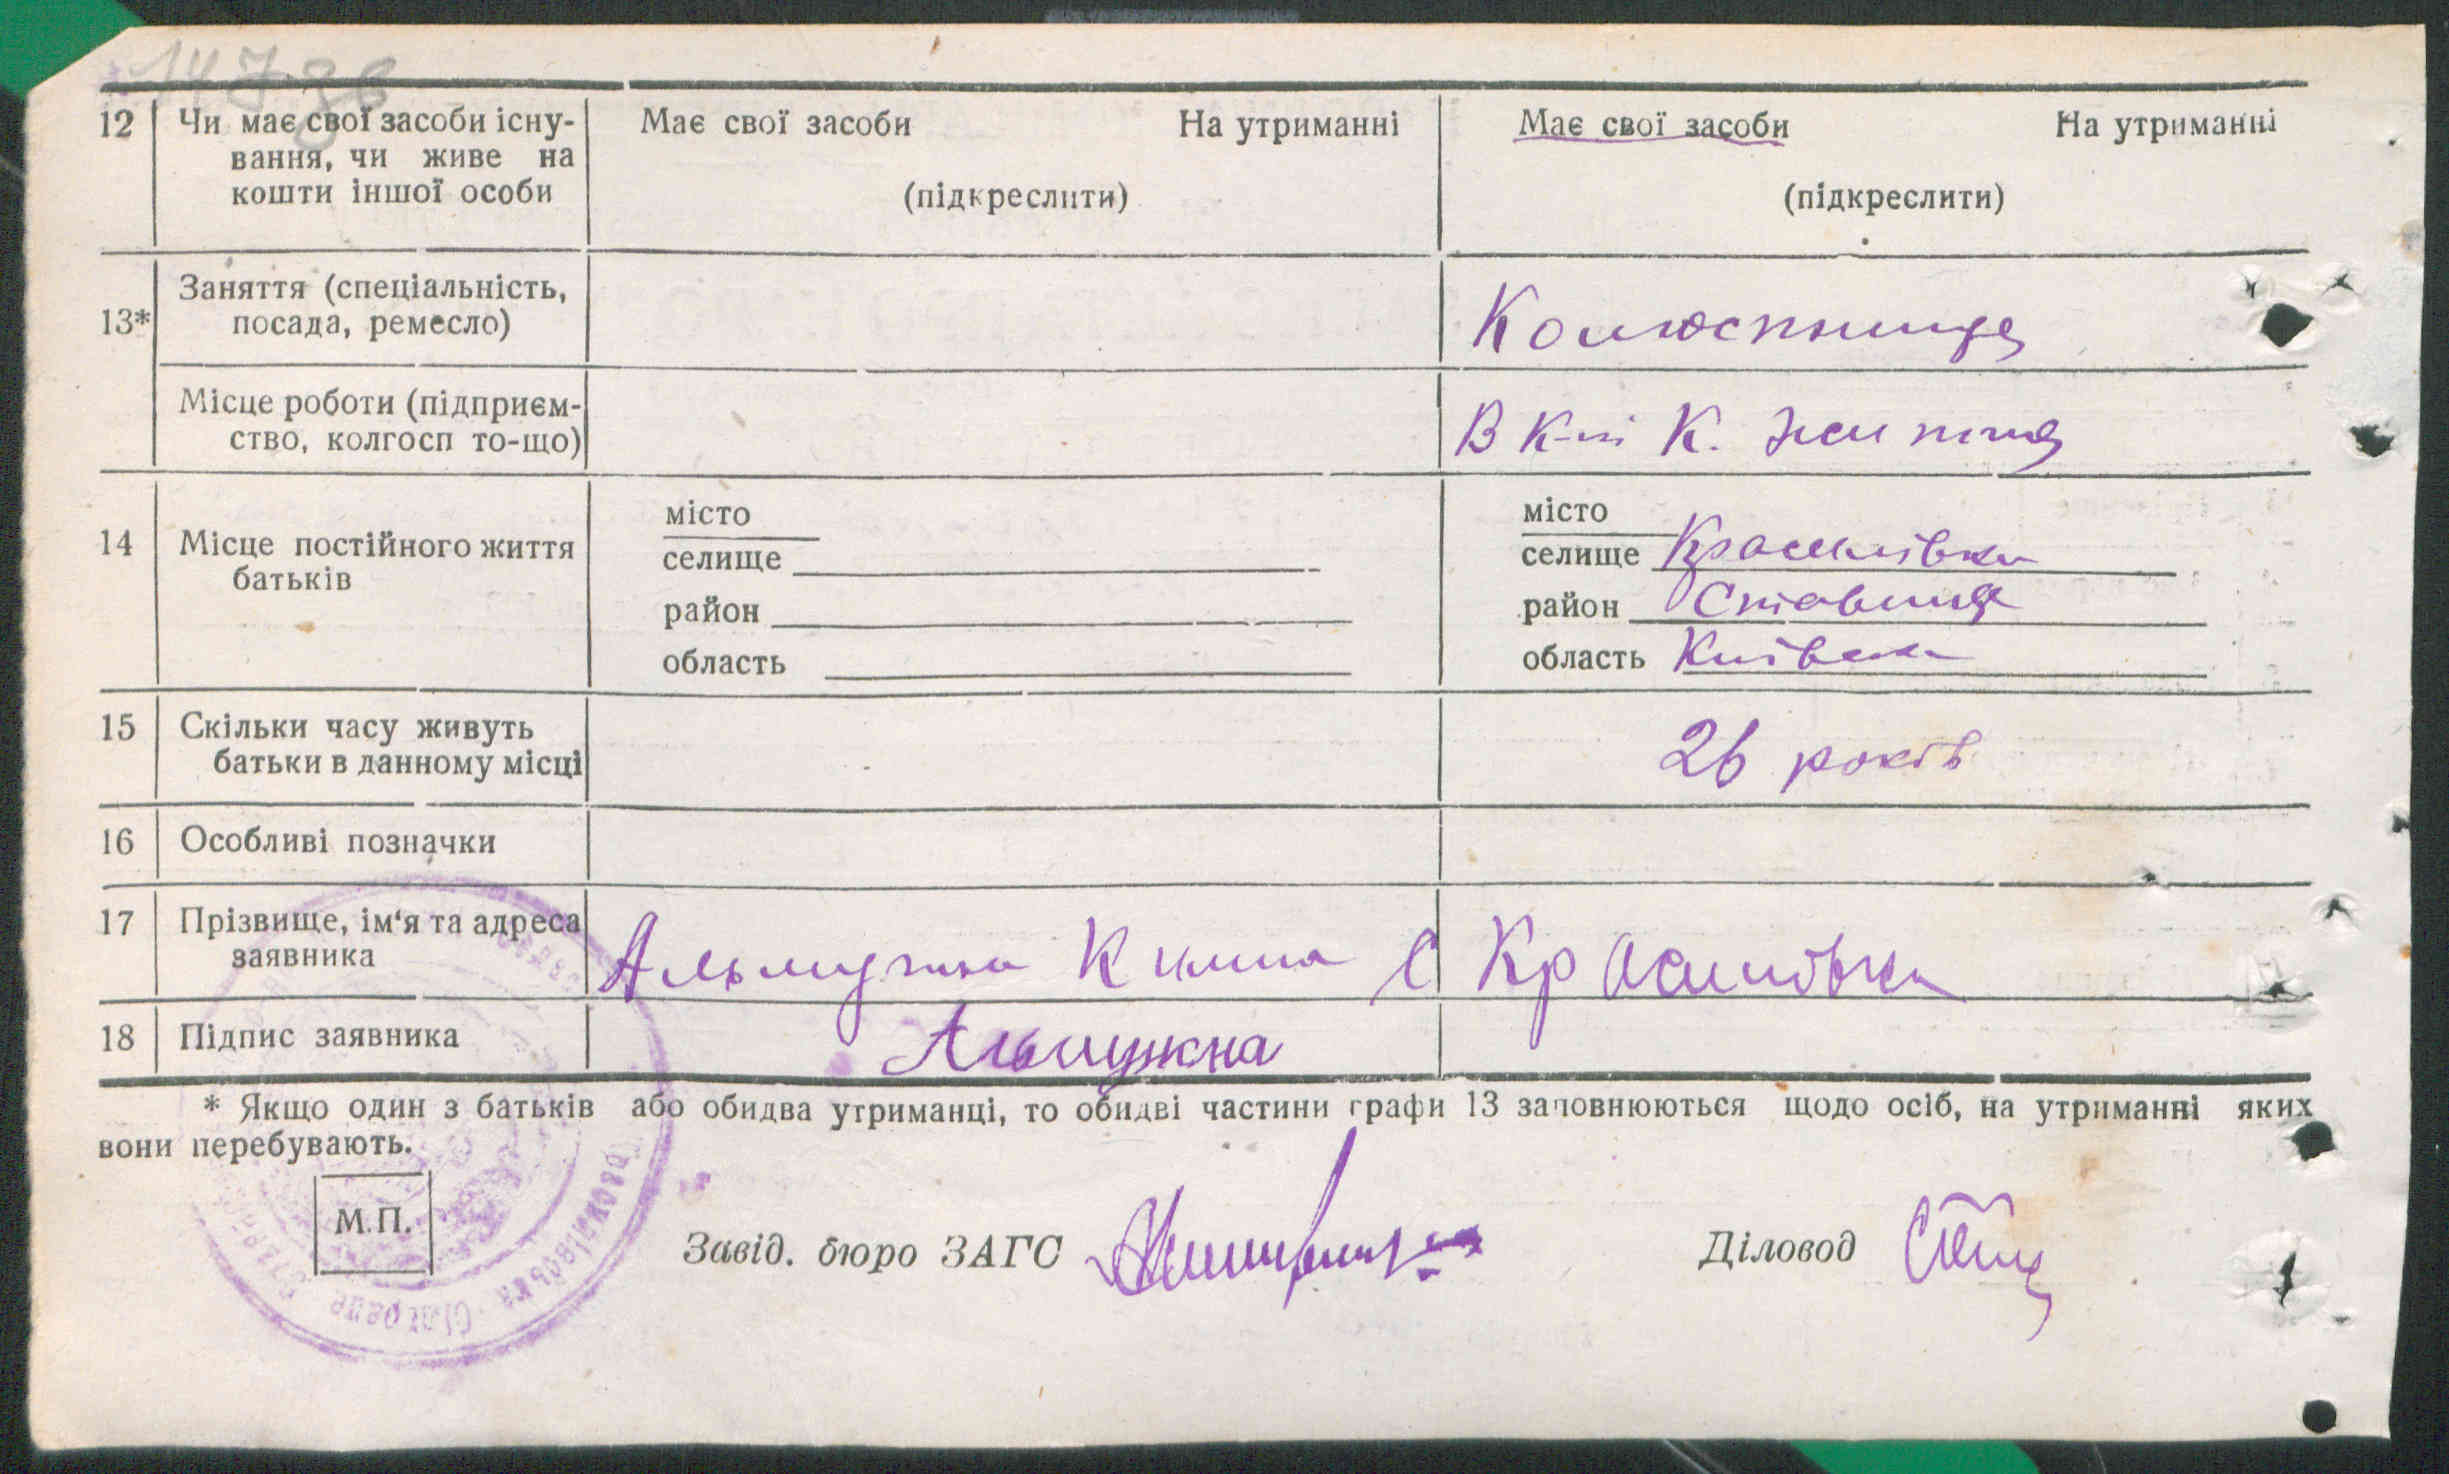 12 Чи має свої засоби існу- Має свої засоби На утриманні Має свої засоби На утриманні
вання, чи живе на
кошти іншої особи (підкреслити) (підкреслити)
Заняття (спеціальність,
13* посада, ремесло)
Місце роботи (підприєм- В К. 
ство, колгосп то-що)
місто місто
14 Місце постійного життя селище селище Красилівка
батьків район район Ставище
область область Київська
15 Скільки часу живуть 26 років
батьки в данному місці
16 Особливі позначки
17 Прізвище, ім‘я та адреса
заявника с Красилівка
18 Підпис заявника
* Якщо один з батьків або обидва утриманці, то обидві частини графи 13 заповнюються щодо осіб, на утриманні яких
вони перебувають.
М.П.
Завід. бюро ЗАГС Діловод